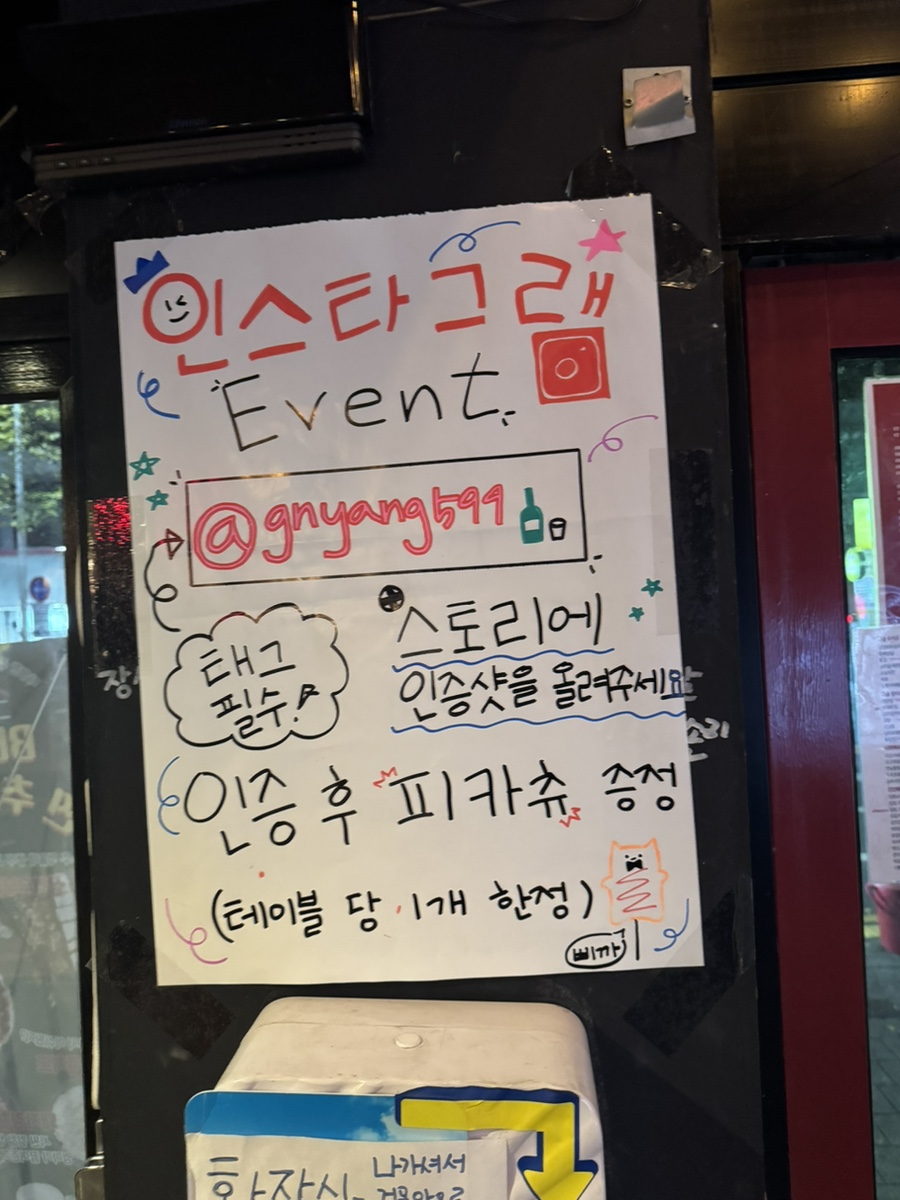 인스타그램
Event
@gnyang599
태그
필수!
스토리에
인증샷을 올려주세요
인증 후 피카츄 증정
(테이블 당 1개 한정)
삐까
화장실
나가셔서